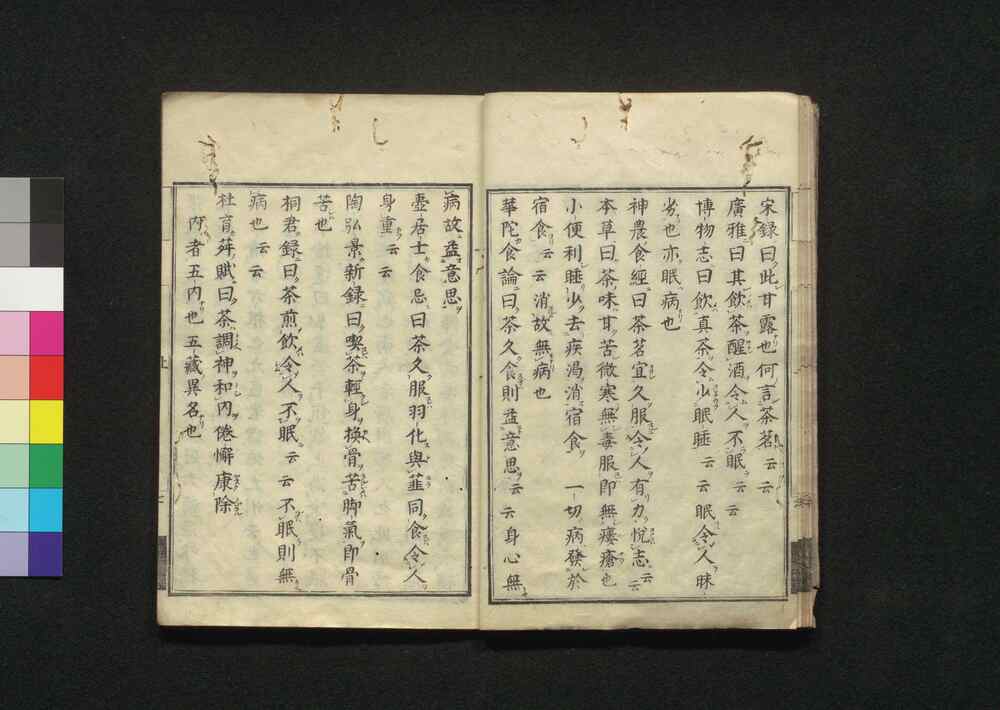 宋録曰此甘露也何言茶茗云云
廣雅曰其飲茶醒酒令人不眠云云
博物志曰飲真茶令少眠睡云云眠令人昧
劣也亦眠病也
神農食經曰茶茗宜久服令人有力悅志云云
本草曰茶味甘苦微寒無毒服即無瘻瘡也
小便利睡少去疾渴消宿食一切病發於
宿食云云消故無病也
華陀食論曰茶久食則益意思云云身心無
病故益意思
壺居士食忌曰茶久服羽化與韮同食令人
身重云云
陶弘景新録曰喫茶輕身換骨苦脚氣即骨
苦也
桐君録曰茶煎飲令人不眠云云不眠則無
病也云云
杜育荈賦曰茶調神和内倦懈康除
内者五内也五藏異名也